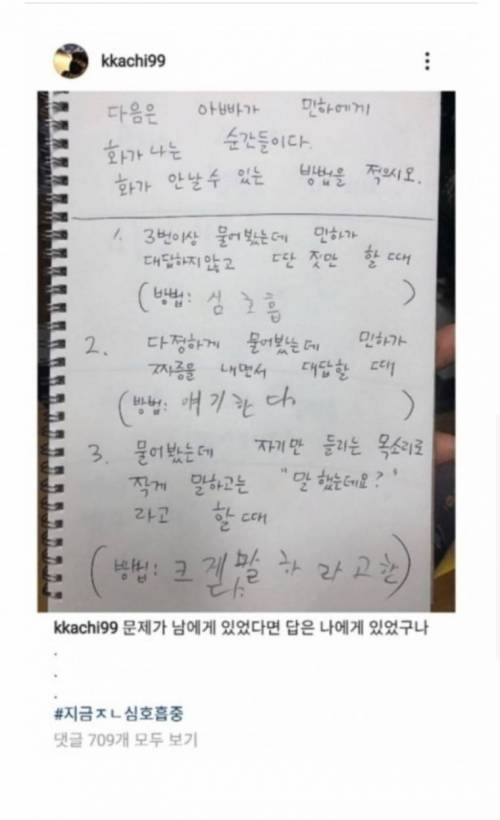 kkachi99
다음은 아빠가 민하에게
화가 나는 순간들이다.
화가 안날 수 있는 방법을 적으시오.
1. 3번이상 물어봤는데 민하가
대답하지않고 딴 짓만 할 때
(방법: 심호흡)
2. 다정하게 물어봤는데 민하가
짜증을 내면서 대답할 때
(방법: 얘기한다)
3. 물어봤는데 자기만 들리는 목소리로
작게 말하고는 "말했는데요?"
라고 할 때
(방법: 크게 말하라고한
다.)
kkachi99 문제가 남에게 있었다면 답은 나에게 있었구나
.
.
.
#지금ㅈㄴ심호흡중
댓글 709개 모두 보기